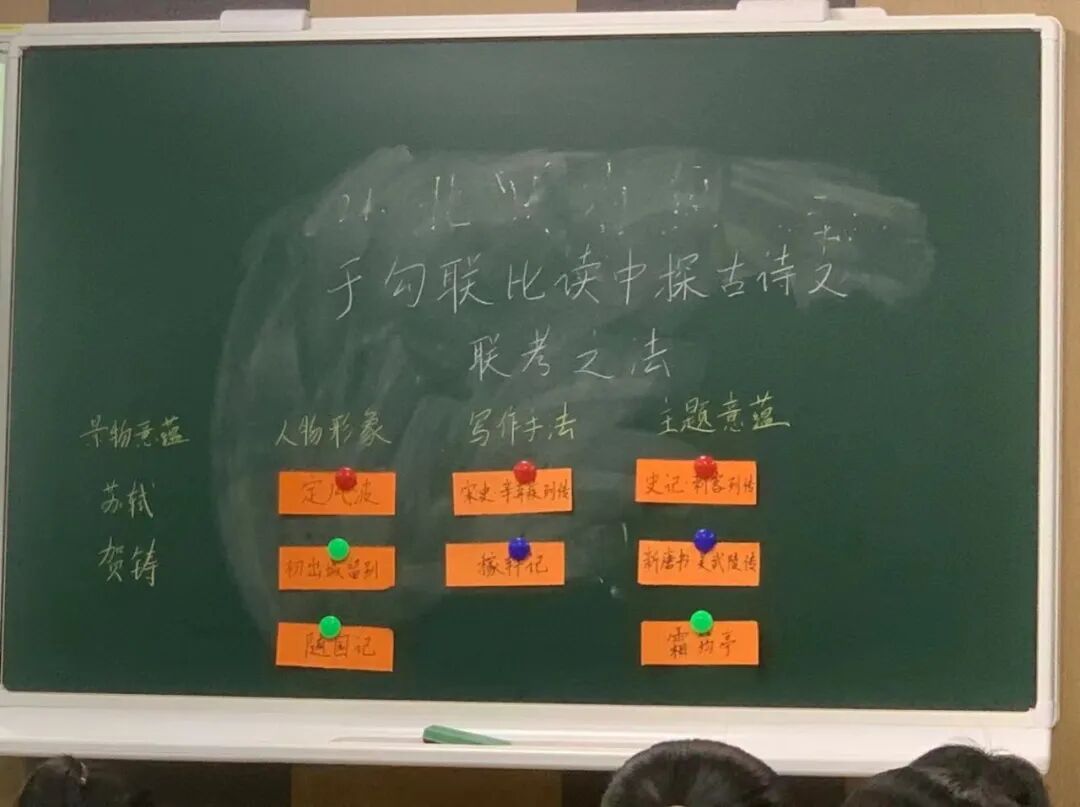 于勾联比读中探古诗文
联考之法
景物意蕴 人物形象 写作手法 主题意蕴
苏轼 定风波 宋史·辛弃疾列传 史记·刺客列传
贺铸 初出城留别 稼轩记 新唐书 吴武陵传
随园记 霜筠亭